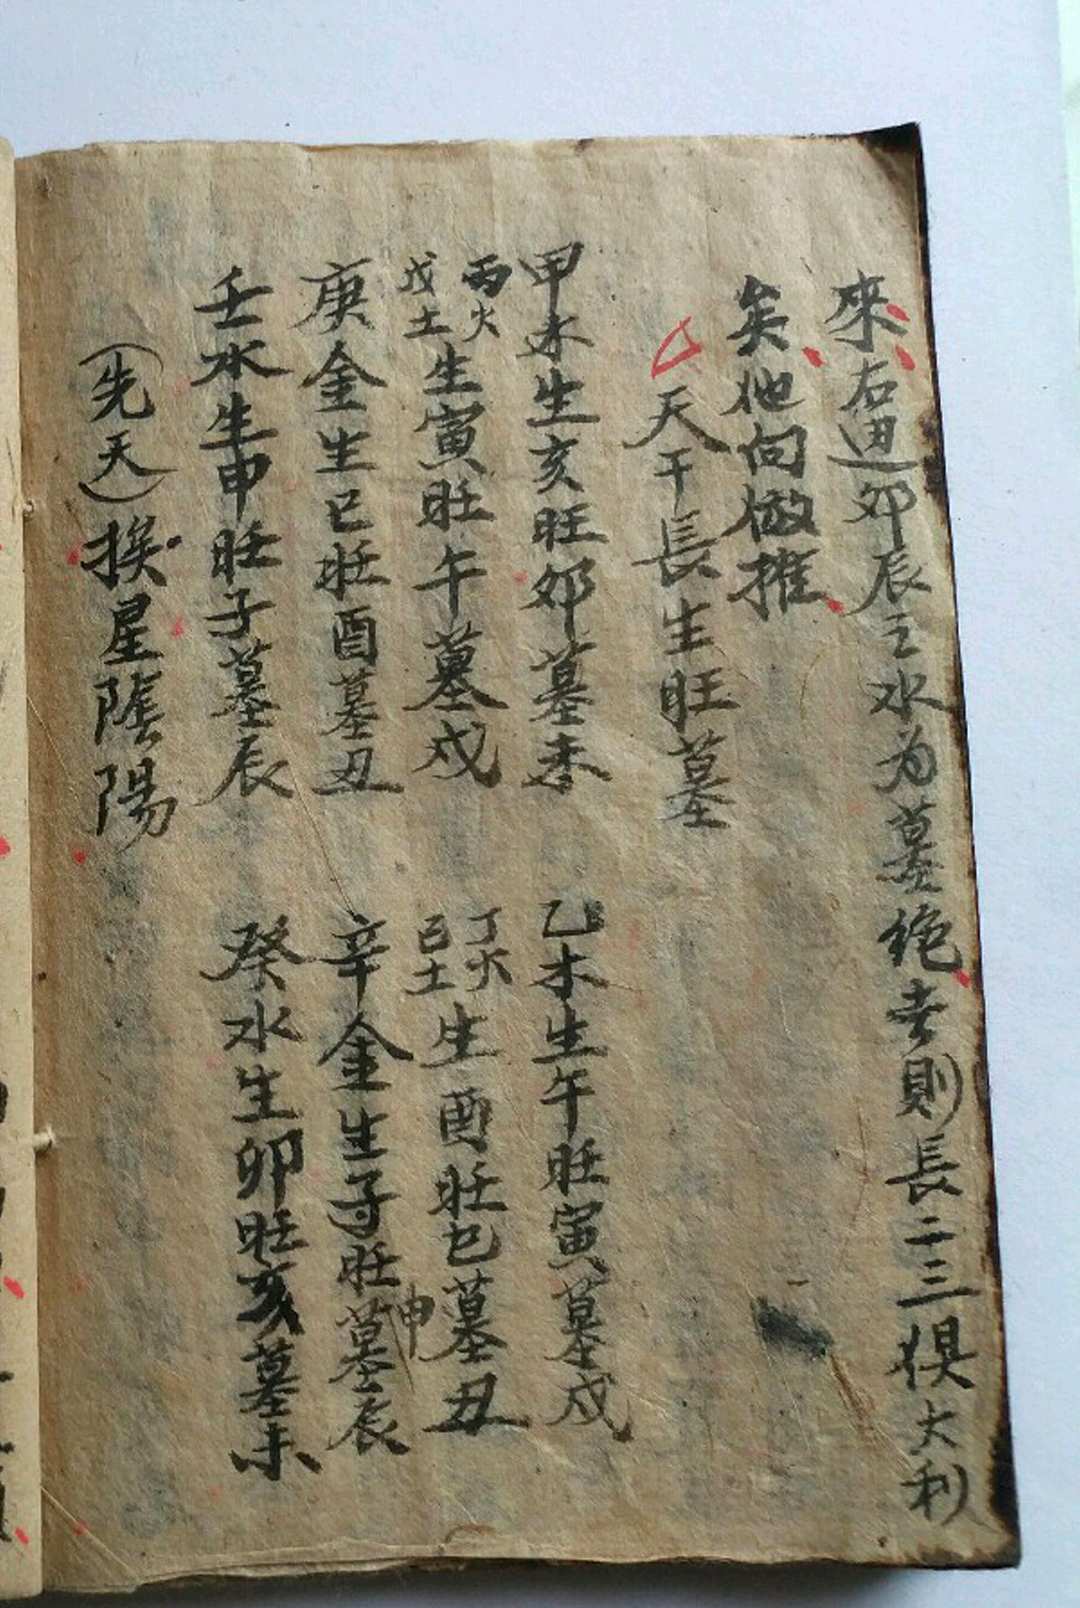 來右邊卯辰之水為墓絕去則長二三俱大利
矣他句倣推
天干長生旺墓
甲木生亥旺卯墓未 乙木生午旺寅墓戌
丙火戊土生寅旺午墓戌 丁火己土生酉旺巳墓丑
庚金生巳旺酉墓丑 辛金生子旺申墓辰
壬水生申旺子墓辰 癸水生卯旺亥墓未
(先天)挨星陰陽